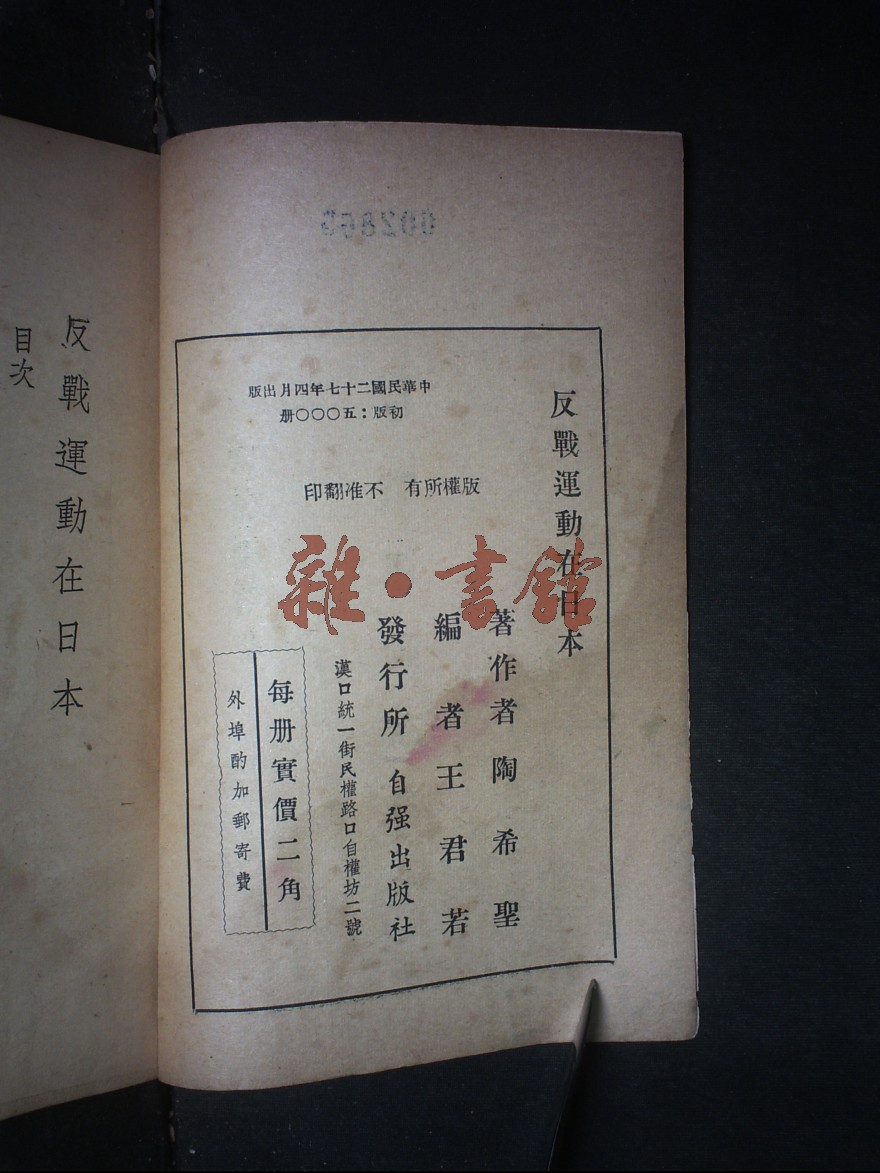 反戰運動在日本
目次
602865
中華民國二十七年四月出版
初版：五〇〇〇册
版權所有 不准翻印
反戰運動在日本
著作者陶希聖
編者王君若
發行所自强出版社
漢口統一街民權路口自權坊二號
每册實價二角
外埠酌加郵寄費
雜·書館